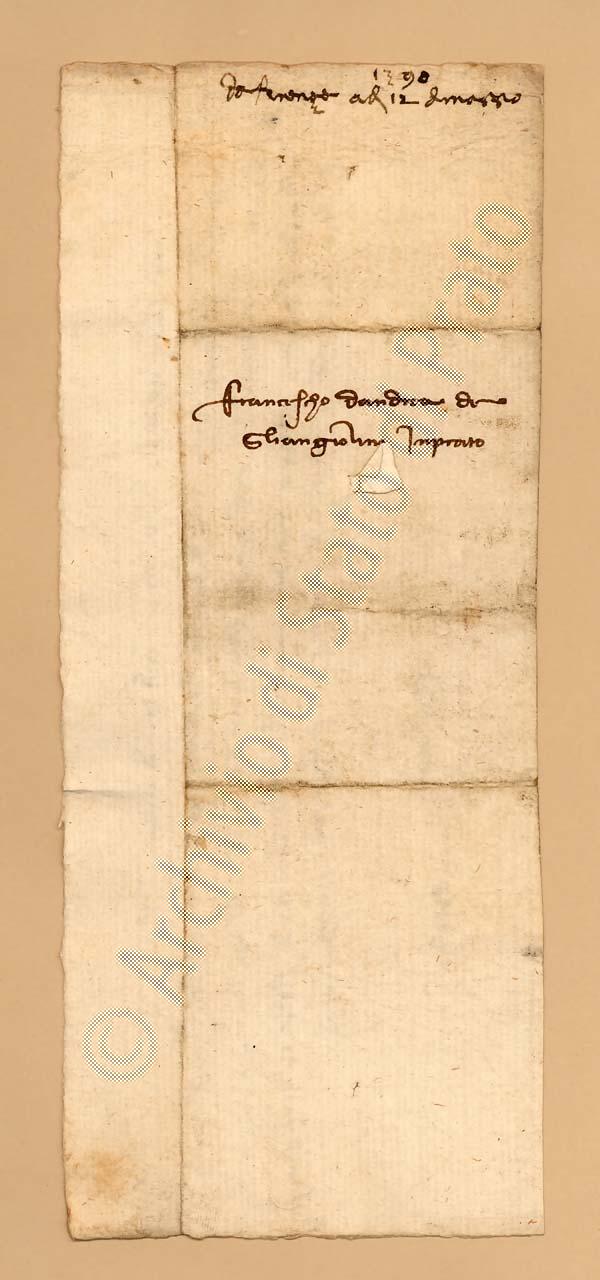 1398
da firenze a dì 12 di marzo
Franciescho dandrea de
Ghiangiolini Inprato
© Archivio di Stato di Prato